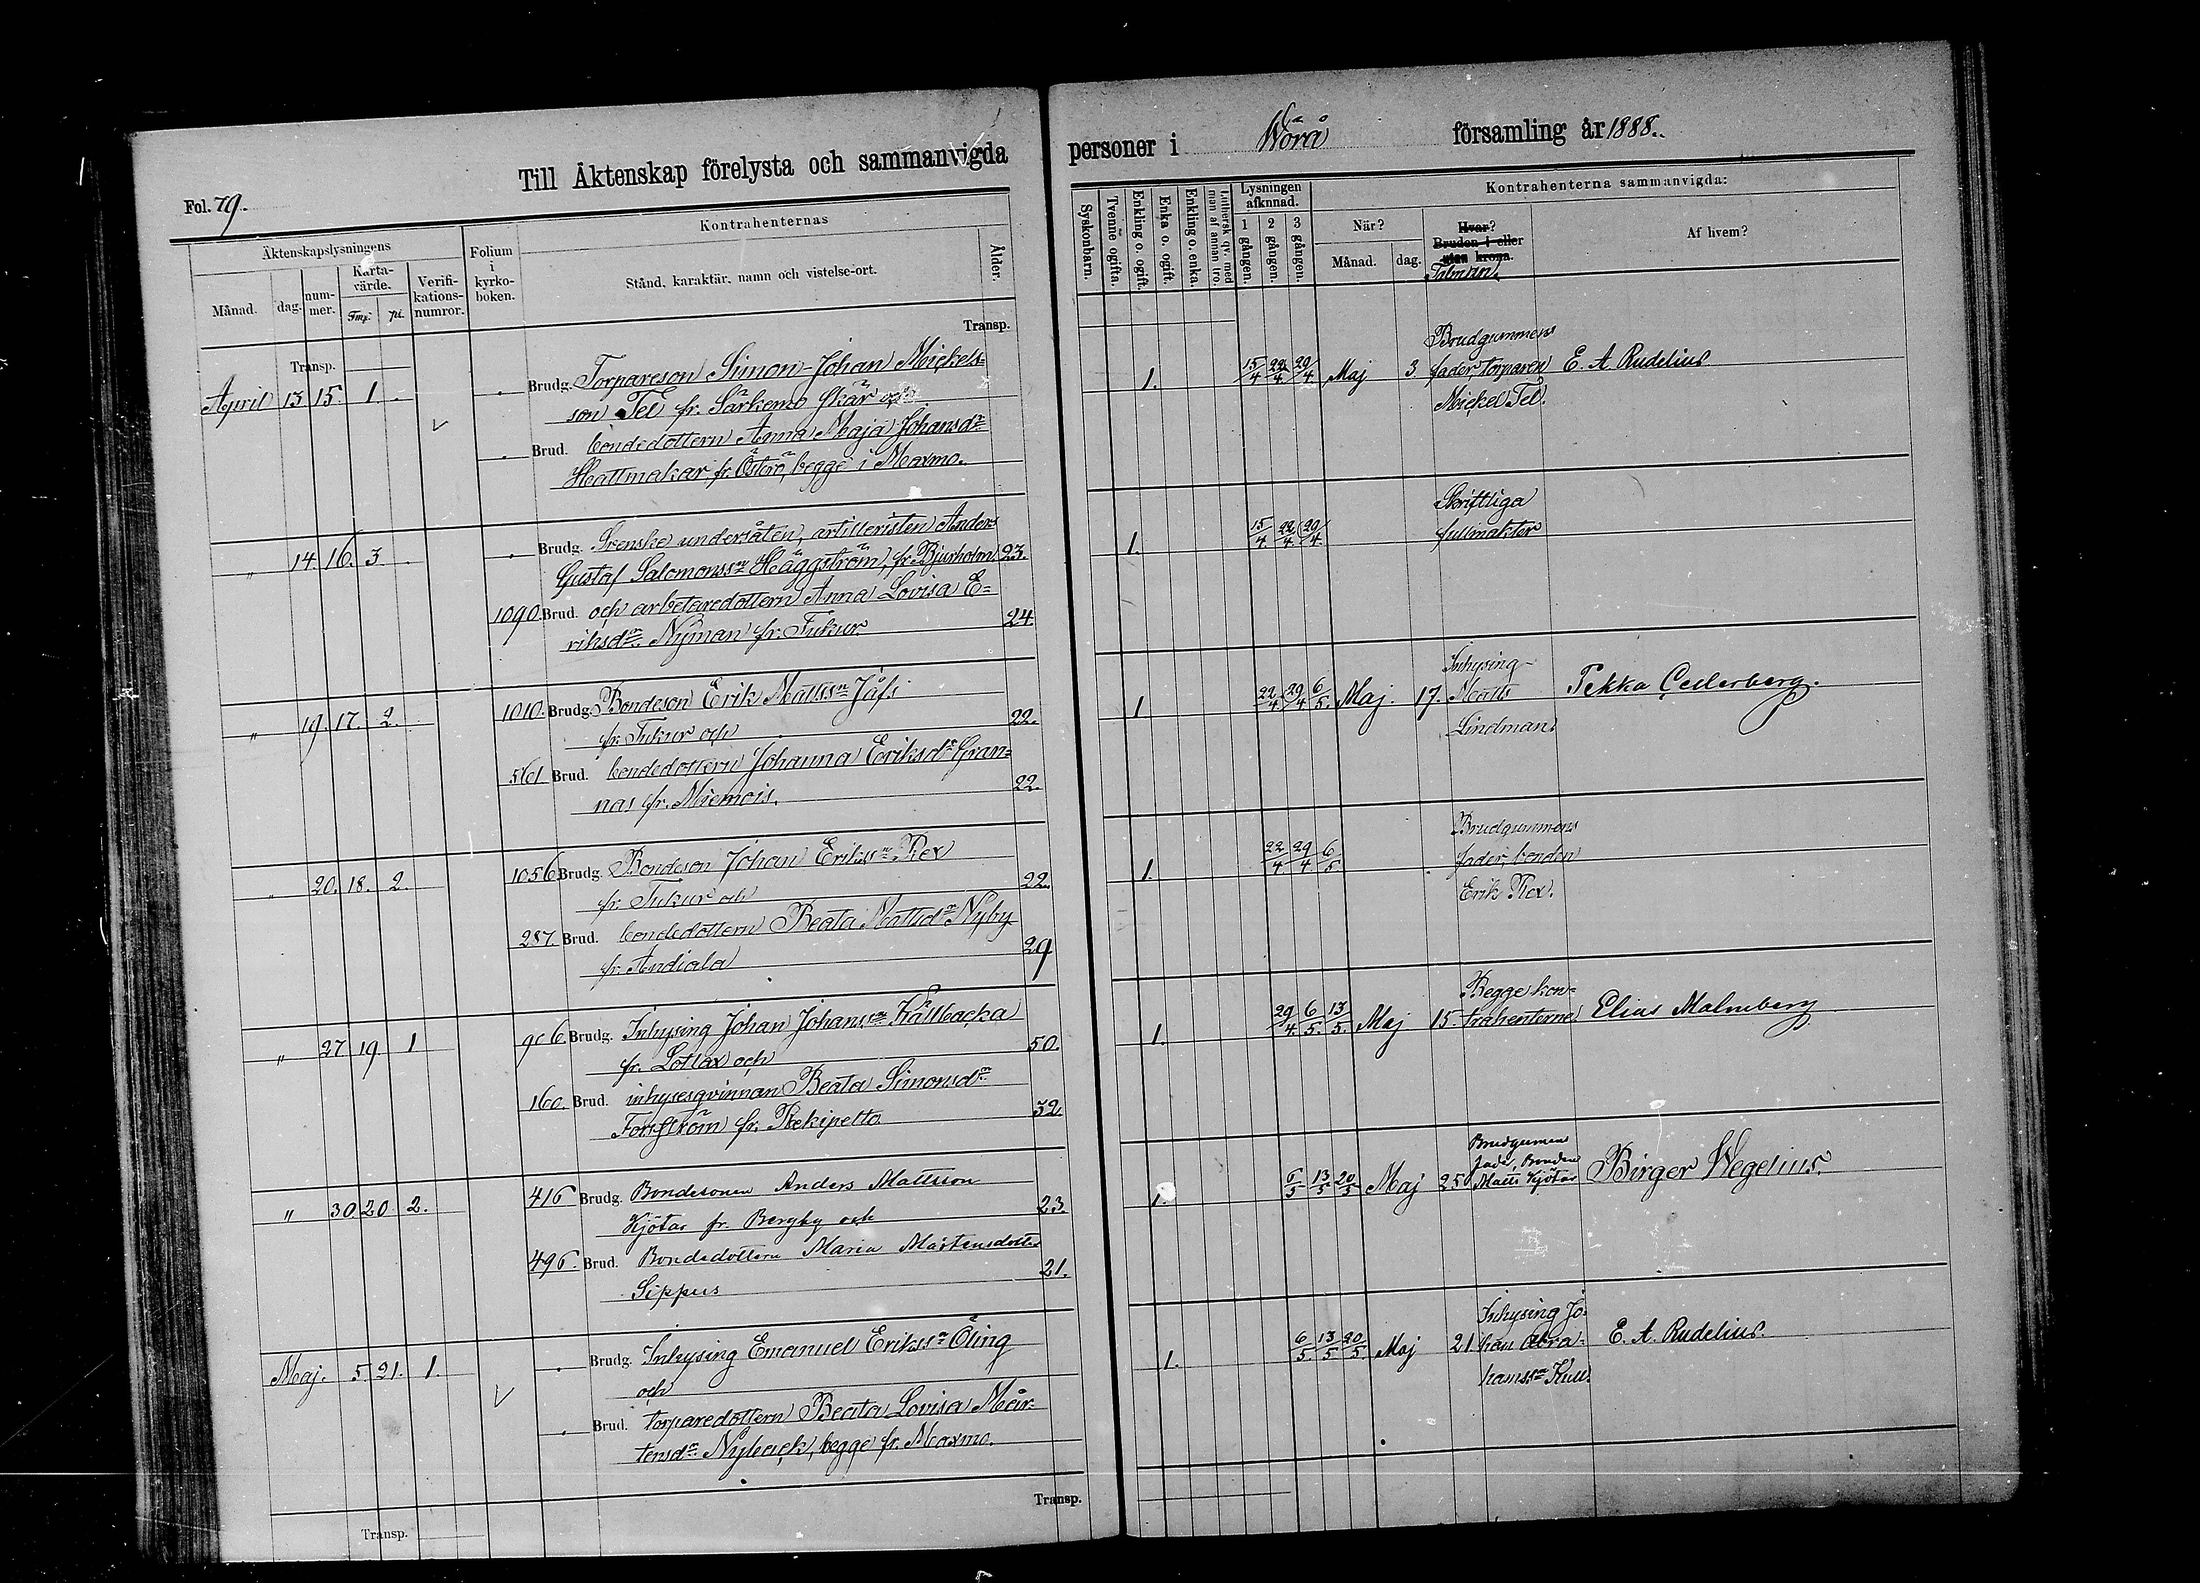 Till Äktenskap förelysta och sammanvigda
personer i Wörå församling år 1888.
Fol. 79.
Äktenskapslysningens
Månad. dag. num-mer. Karta-värde. Fmp. pi. Verifi-kations-numror.
Folium i kyrko-boken.
Kontrahenternas
Stånd, karaktär, namn och vistelse-ort.
Ålder.
Syskonbarn.
Tvenne ogifta.
Enkling o. ogift.
Enka o. ogift.
Enkling o. enka.
Luthersk qv. med man af annan tro.
Lysningen afknnad.
1 gången. 2 gången. 3 gången.
Kontrahenterna sammanvigda:
När?
Månad. dag.
Hvar?
Bruden i eller
utan krona.
Talman.
Af hvem?
Transp.
Transp.
April 13 15. 1. Brudg. Torpareson Simon Johan Mickels-
son Tel fr. Särkemo skär och
Brud. bondedottern Anna Maja Johansdr
Hattmakar fr. Österö, begge i Maxmo.
1. 15/4 22/4 29/4 Maj 3 Brudgummens
fader, torparen
Mickel Tel.
E. A. Rudelius
" 14. 16. 3. Brudg. Svenske undersåten, artilleristen Anders
Gustaf Salomonssn Häggström, fr. Bjurholm 23.
1090. Brud. och arbetaredottern Anna Lovisa E=
riksdr Nyman fr. Tukur. 24.
1. 15/4 22/4 29/4 Skriftliga
fullmakter
" 19. 17. 2. 1010. Brudg. Bondeson Erik Mattssn Jåfs
fr. Tukur och 22.
561 Brud. bondedottern Johanna Eriksdr Gran=
nas fr. Miemois. 22.
1 22/4 29/4 6/5. Maj. 17. Inhysing
Matts
Lindman.
Pekka Cederberg.
" 20. 18. 2. 1056 Brudg. Bondeson Johan Erikssn Rex
fr. Tukur och 22.
287. Brud. bondedottern Beata Mattsdr Nyby
fr. Andiala 29
1. 22/4 29/4 6/5. Brudgummens
fader, bonden
Erik Rex.
" 27 19. 1 906. Brudg. Inhysing Johan Johanssn Hällbacka
fr. Lotlax och 50.
160. Brud. inhysesqvinnan Beata Simonsdr
Forsström fr. Rekipelto. 32
1. 29/4 6/5. 13/5. Maj 15. Begge kon=
trahenterne
Elias Malmberg
" 30 20 2. 416 Brudg. Bondesonen Anders Mattsson
Kjötar fr. Bergby och 23.
496. Brud. Bondedottern Maria Mårtensdotter
Sippus 21.
1. 6/5 13/5 20/5 Maj 25 Brudgumens
fader, Bonden
Matts Kjötar
Birger Wegelius.
Maj. 5 21. 1. Brudg. Inhysing Emanuel Erikssn Öling
och
Brud. torparedottern Beata Lovisa Mår-
tensdr Nyback, begge fr. Maxmo.
1. 6/5. 13/5 20/5. Maj 21. Inhysing Jo-
han Abra-
hamssn Kull.
E. A. Rudelius.
Transp.
Transp.